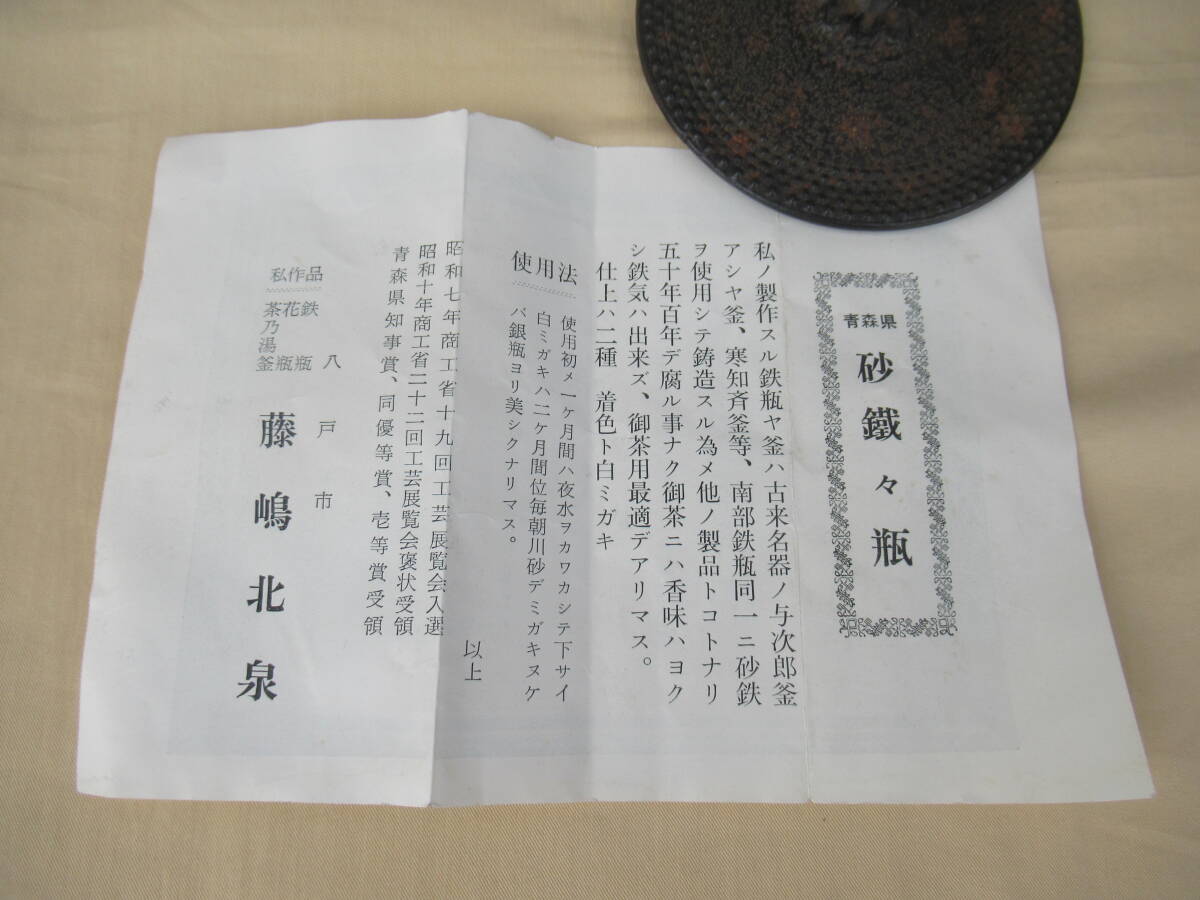 青森県
砂鐵々瓶
私ノ製作スル鉄瓶ヤ釜ハ古来名器ノ与次郎釜
アシヤ釜、寒知斉釜等、南部鉄瓶同一ニ砂鉄
ヲ使用シテ鋳造スル為メ他ノ製品トコトナリ
五十年百年デ腐ル事ナク御茶ニハ香味ハヨク
シ鉄気ハ出来ズ、御茶用最適デアリマス。
仕上ハ二種　着色ト白ミガキ
使用法
使用初メ一ケ月間ハ夜水ヲカワカシテ下サイ
白ミガキハ二ケ月間位毎朝川砂デミガキヌケ
バ銀瓶ヨリ美シクナリマス。
以上
昭和七年商工省十九回工芸展覧会入選
昭和十年商工省二十二回工芸展覧会褒状受領
青森県知事賞、同優等賞、壱等賞受領
私作品
鉄瓶
花瓶
茶乃湯釜
八戸市
藤嶋北泉